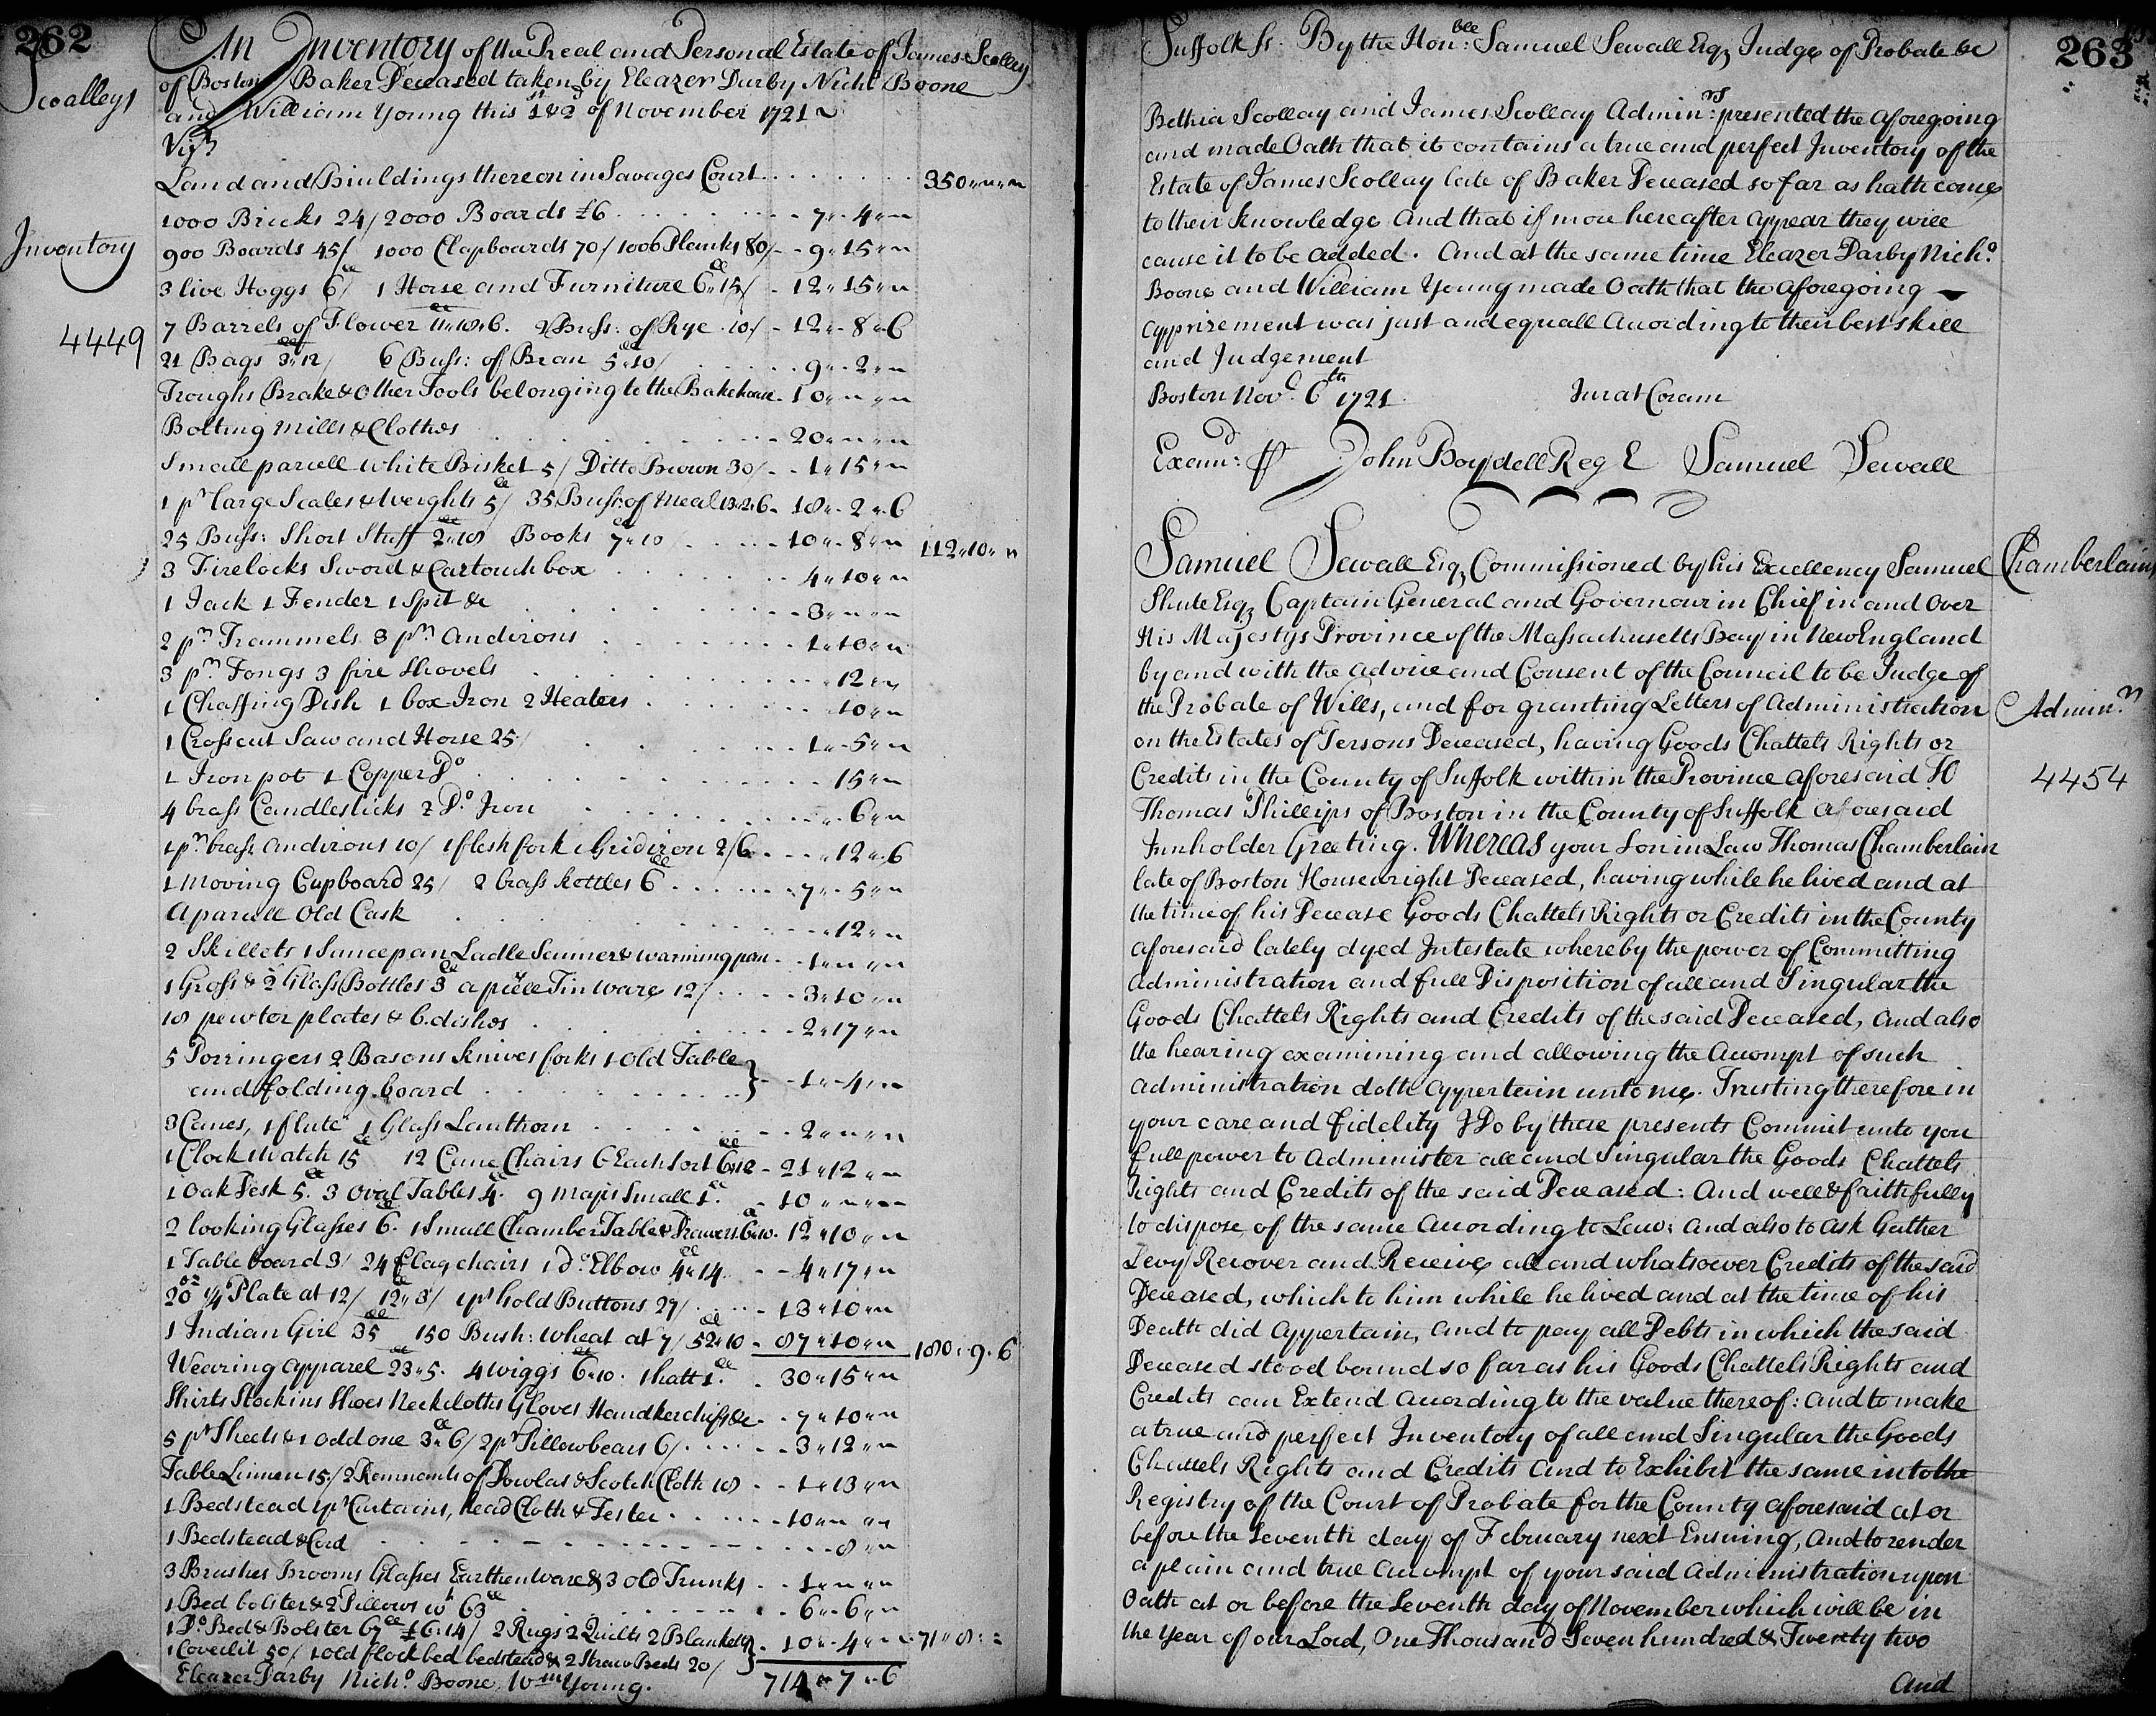 262
Scoalleys
Inventory
4449
An Inventory of the Real and Personal Estate of James Scollay
of Boston Baker Deceased taken by Eleazer Darby Nicho Boone
and William Young this 1st & 2d of November 1721
Vizt
Land and Buildings thereon in Savages Court 350" " "
1000 Bricks 24/ 2000 Boards £6 7" 4 "
900 Boards 45/ 1000 Clapboards 70/ 1000 Planks 80/ 9" 15 "
3 live Hoggs 6 1 Horse and Furniture 6" 15/ 12" 15 "
7 Barrels of Flower 11" 18" 6. 2 Bush: of Rye 10/ 12" 8" 6
21 Bags 3" 12/ 6 Bush: of Bran 5" 10/ 9" 2 "
Troughs Brake & Other Tools belonging to the Bakehouse 10" " "
Bolting Mills & Clothes 20" " "
Small parcell white Bisket 5/ Ditto Brown 30/ 1" 15 "
1 pr large Scales & weights 5/ 35 Bush: of Meal 13" 2" 6 18" 2" 6
25 Bush: Short Stuff 2" 18 Books 7" 10 10" 8 " 112" 10" "
3 Firelocks Sword & Cartouch box 4" 10 "
1 Jack 1 Fender 1 Spit &c 3" " "
2 pr Trammels 3 pr Andirons 1" 10 "
3 pr Tongs 3 fire Shovels 12 "
1 Chaffing Dish 1 box Iron 2 Heaters 10 "
1 Crosscut Saw and Horse 25/ 1" 5 "
1 Iron pot 1 Copper Do 15 "
4 brass Candlesticks 2 Do Iron 6 "
1 pr brass Andirons 10/ 1 flesh fork 1 Gridiron 2/6 12" 6
1 Moving Cupboard 25/ 2 brass kettles 6 7" 5 "
A parcell Old Cask 12 "
2 Skillets 1 Saucepan Ladle Scumer & warming pan 1" " "
1 Gross & 2 Glass Bottles 3 a piece Tin ware 12/ 3" 10 "
18 pewter plates & 6 dishes 2" 17 "
5 Porringers 2 Basons knives forks 1 Old Table
and folding board 1" 4 "
3 Canes, 1 flute 1 Glass Lanthorn 2" " "
1 Clock Watch 15 12 Cane Chairs 6 Each Sort 6" 12 21" 12 "
1 Oak Desk 5. 3 Oval Tables 4. 9 Maps Small 1. 10" " "
2 looking Glasses 6. 1 Small Chamber Table & Drawers 6" 10. 12" 10 "
1 Table board 3/ 24 Flag chairs 1 do Elbow 4" 14 4" 17 "
20 oz ¼ Plate at 12/ 12" 3/ 1 pr Gold Buttons 27/ 13" 10 "
1 Indian Girl 35 150 Bush: Wheat at 7/ 52" 10 87" 10 " 180" 9" 6
Wearing Apparel 23" 5. 4 wiggs 6" 10. 1 hatt 1. 30" 15 "
Shirts Stockins Shoes Neckcloths Gloves Handkerchiefs &c 7" 10 "
5 pr Sheets & 1 odd one 3" 6/ 2 pr Pillowbears 6/ 3" 12 "
Table Linnen 15/ 2 Remnants of Dowlas & Scotch Cloth 18 1" 13 "
1 Bedstead 1 pr Curtains, head Cloth & Tester 10" " "
1 Bedstead & Cord 8 "
3 Brushes Brooms Glasses Earthen Ware & 3 old Trunks 1" " "
1 Bed bolster & 2 Pillows wt 63 6" 6 "
1 Do Bed & Bolster 67 £6" 14/ 2 Rugs 2 Quilts 2 Blankets 10" 4 " 71" 8"
1 Coverlit 50/ 1 old flock bed bedstead & 2 Straw Beds 20/
Eleazer Darby Nicho Boone, Wm Young. 714" 7" 6
263
Suffolk Ss. By the Honble: Samuel Sewall Esqr Judge of Probate &c
Bethia Scollay and James Scollay Adminrs: presented the aforegoing
and made Oath that it contains a true and perfect Inventory of the
Estate of James Scollay late of Baker Deceased so far as hath come
to their knowledge And that if more hereafter appear they will
cause it to be Added. And at the same time Eleazer Darby Nicho
Boone and William Young made Oath that the aforegoing
apprizement was just and equall According to their best skill
and Judgement
Boston Novr. 6th 1721. Jurat Coram
Examd: p John Boydell Reg Samuel Sewall
Chamberlains
Adminn
4454
Samuel Sewall Esqr Commissioned by his Excellency Samuel
Shute Esqr Captain General and Governour in Chief in and Over
His Majestys Province of the Massachusetts Bay in New England
by and with the advice and Consent of the Council to be Judge of
the Probate of Wills, and for granting Letters of Administration
on the Estates of Persons Deceased, having Goods Chattels Rights or
Credits in the County of Suffolk within the Province aforesaid To
Thomas Phillips of Boston in the County of Suffolk aforesaid
Innholder Greeting. Whereas your Son in Law Thomas Chamberlain
late of Boston Housewright Deceased, having while he lived and at
the time of his Decease Goods Chattels Rights or Credits in the County
aforesaid lately dyed Intestate whereby the power of Committing
Administration and full Disposition of all and Singular the
Goods Chattels Rights and Credits of the said Deceased, and also
the hearing examining and allowing the Accompt of such
Administration doth appertain unto me. Trusting therefore in
your care and fidelity I Do by these presents Commit unto you
full power to Administer all and Singular the Goods Chattels
Rights and Credits of the said Deceased: And well & faithfully
to dispose of the same According to Law: and also to ask Gather
Levy Recover and Receive all and whatsoever Credits of the said
Deceased, which to him while he lived and at the time of his
Death did appertain, and to pay all Debts in which the said
Deceased stood bound so far as his Goods Chattels Rights and
Credits can Extend According to the value thereof: and to make
a true and perfect Inventory of all and Singular the Goods
Chattels Rights and Credits and to Exhibit the same into the
Registry of the Court of Probate for the County aforesaid at or
before the Seventh day of February next Ensuing, And to render
a plain and true Accompt of your said Administration upon
Oath at or before the Seventh day of November which will be in
the Year of our Lord, One Thousand Seven hundred & Twenty two
And